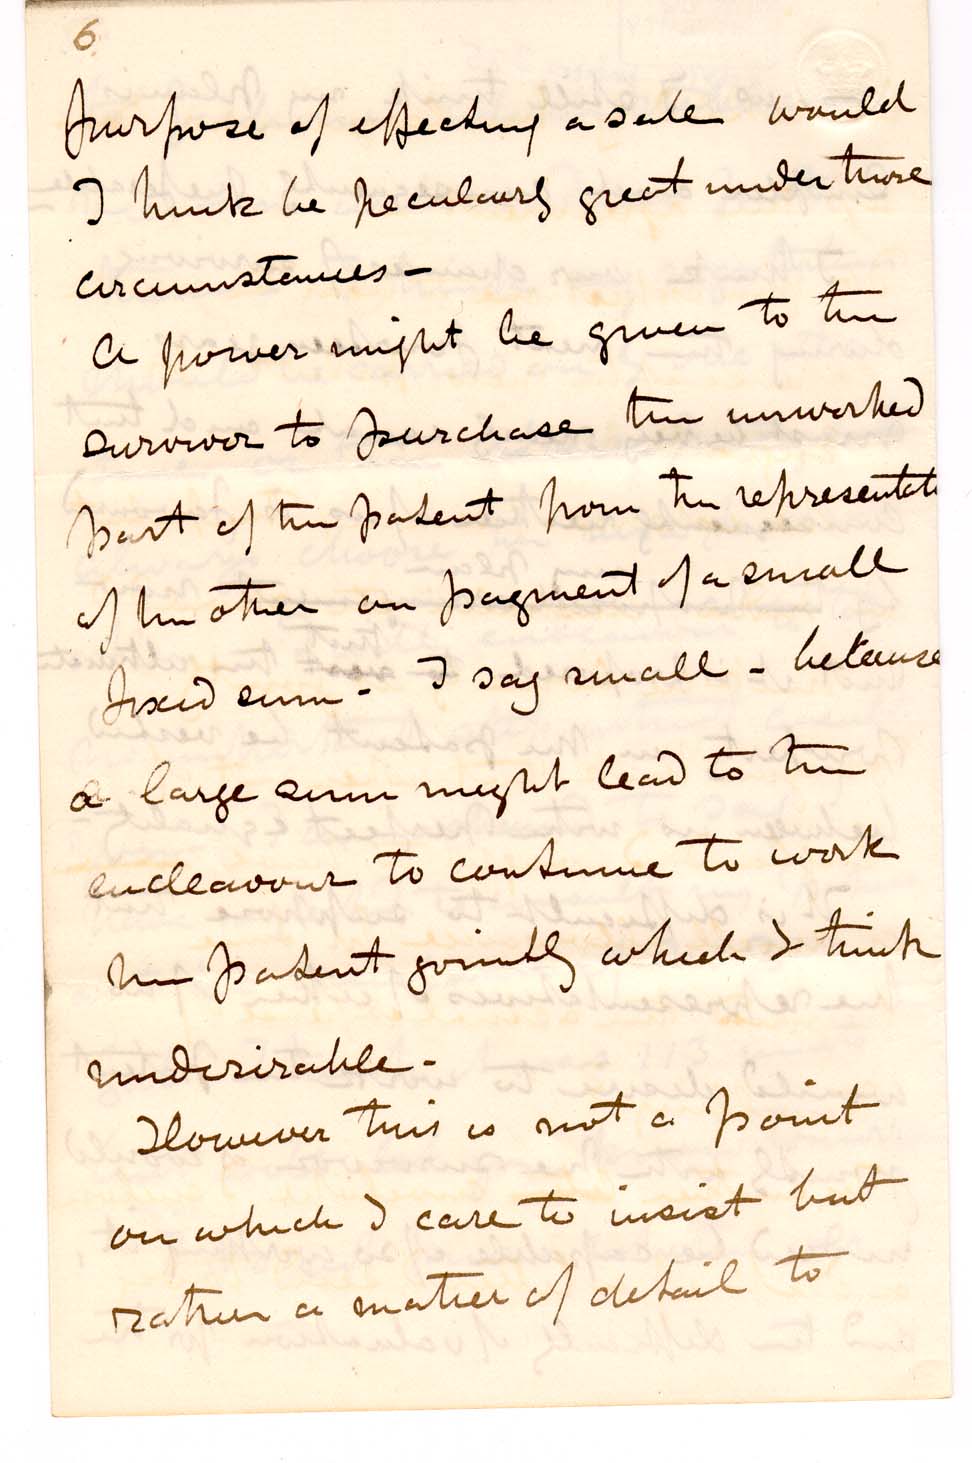 6
purpose of effecting a sale would
I think be peculiarly great under those
circumstances –
A power might be given to the
survivor to purchase the unworked
part of the patent from the representati
of the other on payment of a small
fixed sum – I say small – because
a large sum might lead to the
endeavour to continue to work
the patent jointly which I think
undesirable –
However this is not a point
on which I care to insist but
rather a matter of detail to